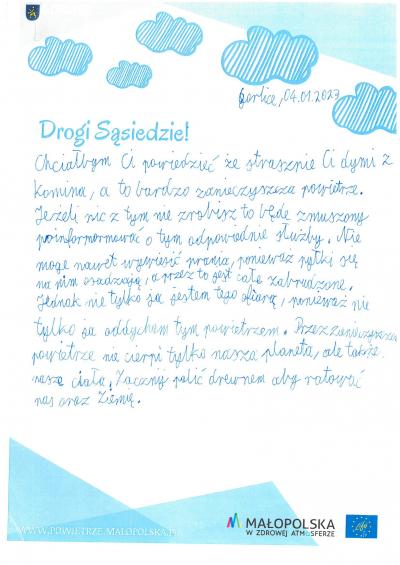 Gorlice, 04.01.2023
Drogi Sąsiedzie!
Chciałbym Ci powiedzieć że strasznie Ci dymi z
komina, a to bardzo zanieczyszcza powietrze.
Jeżeli nic z tym nie zrobisz to będę zmuszony
poinformormować o tym odpowiednie służby. Nie
mogę nawet wywiesić prania, ponieważ pyłki się
na nim osadzają, a przez to jest całe zabrudzone.
Jednak nie tylko ja jestem tego ofiarą, ponieważ nie
tylko ja oddycham tym powietrzem. Przez zanieczyszczen
powietrze nie cierpi tylko nasza planeta, ale także
nasze ciała. Zacznij palić drewnem aby ratować
nas oraz Ziemię.
WWW.POWIETRZE.MALOPOLSKA.PL
MAŁOPOLSKA
W ZDROWEJ ATMOSFERZE